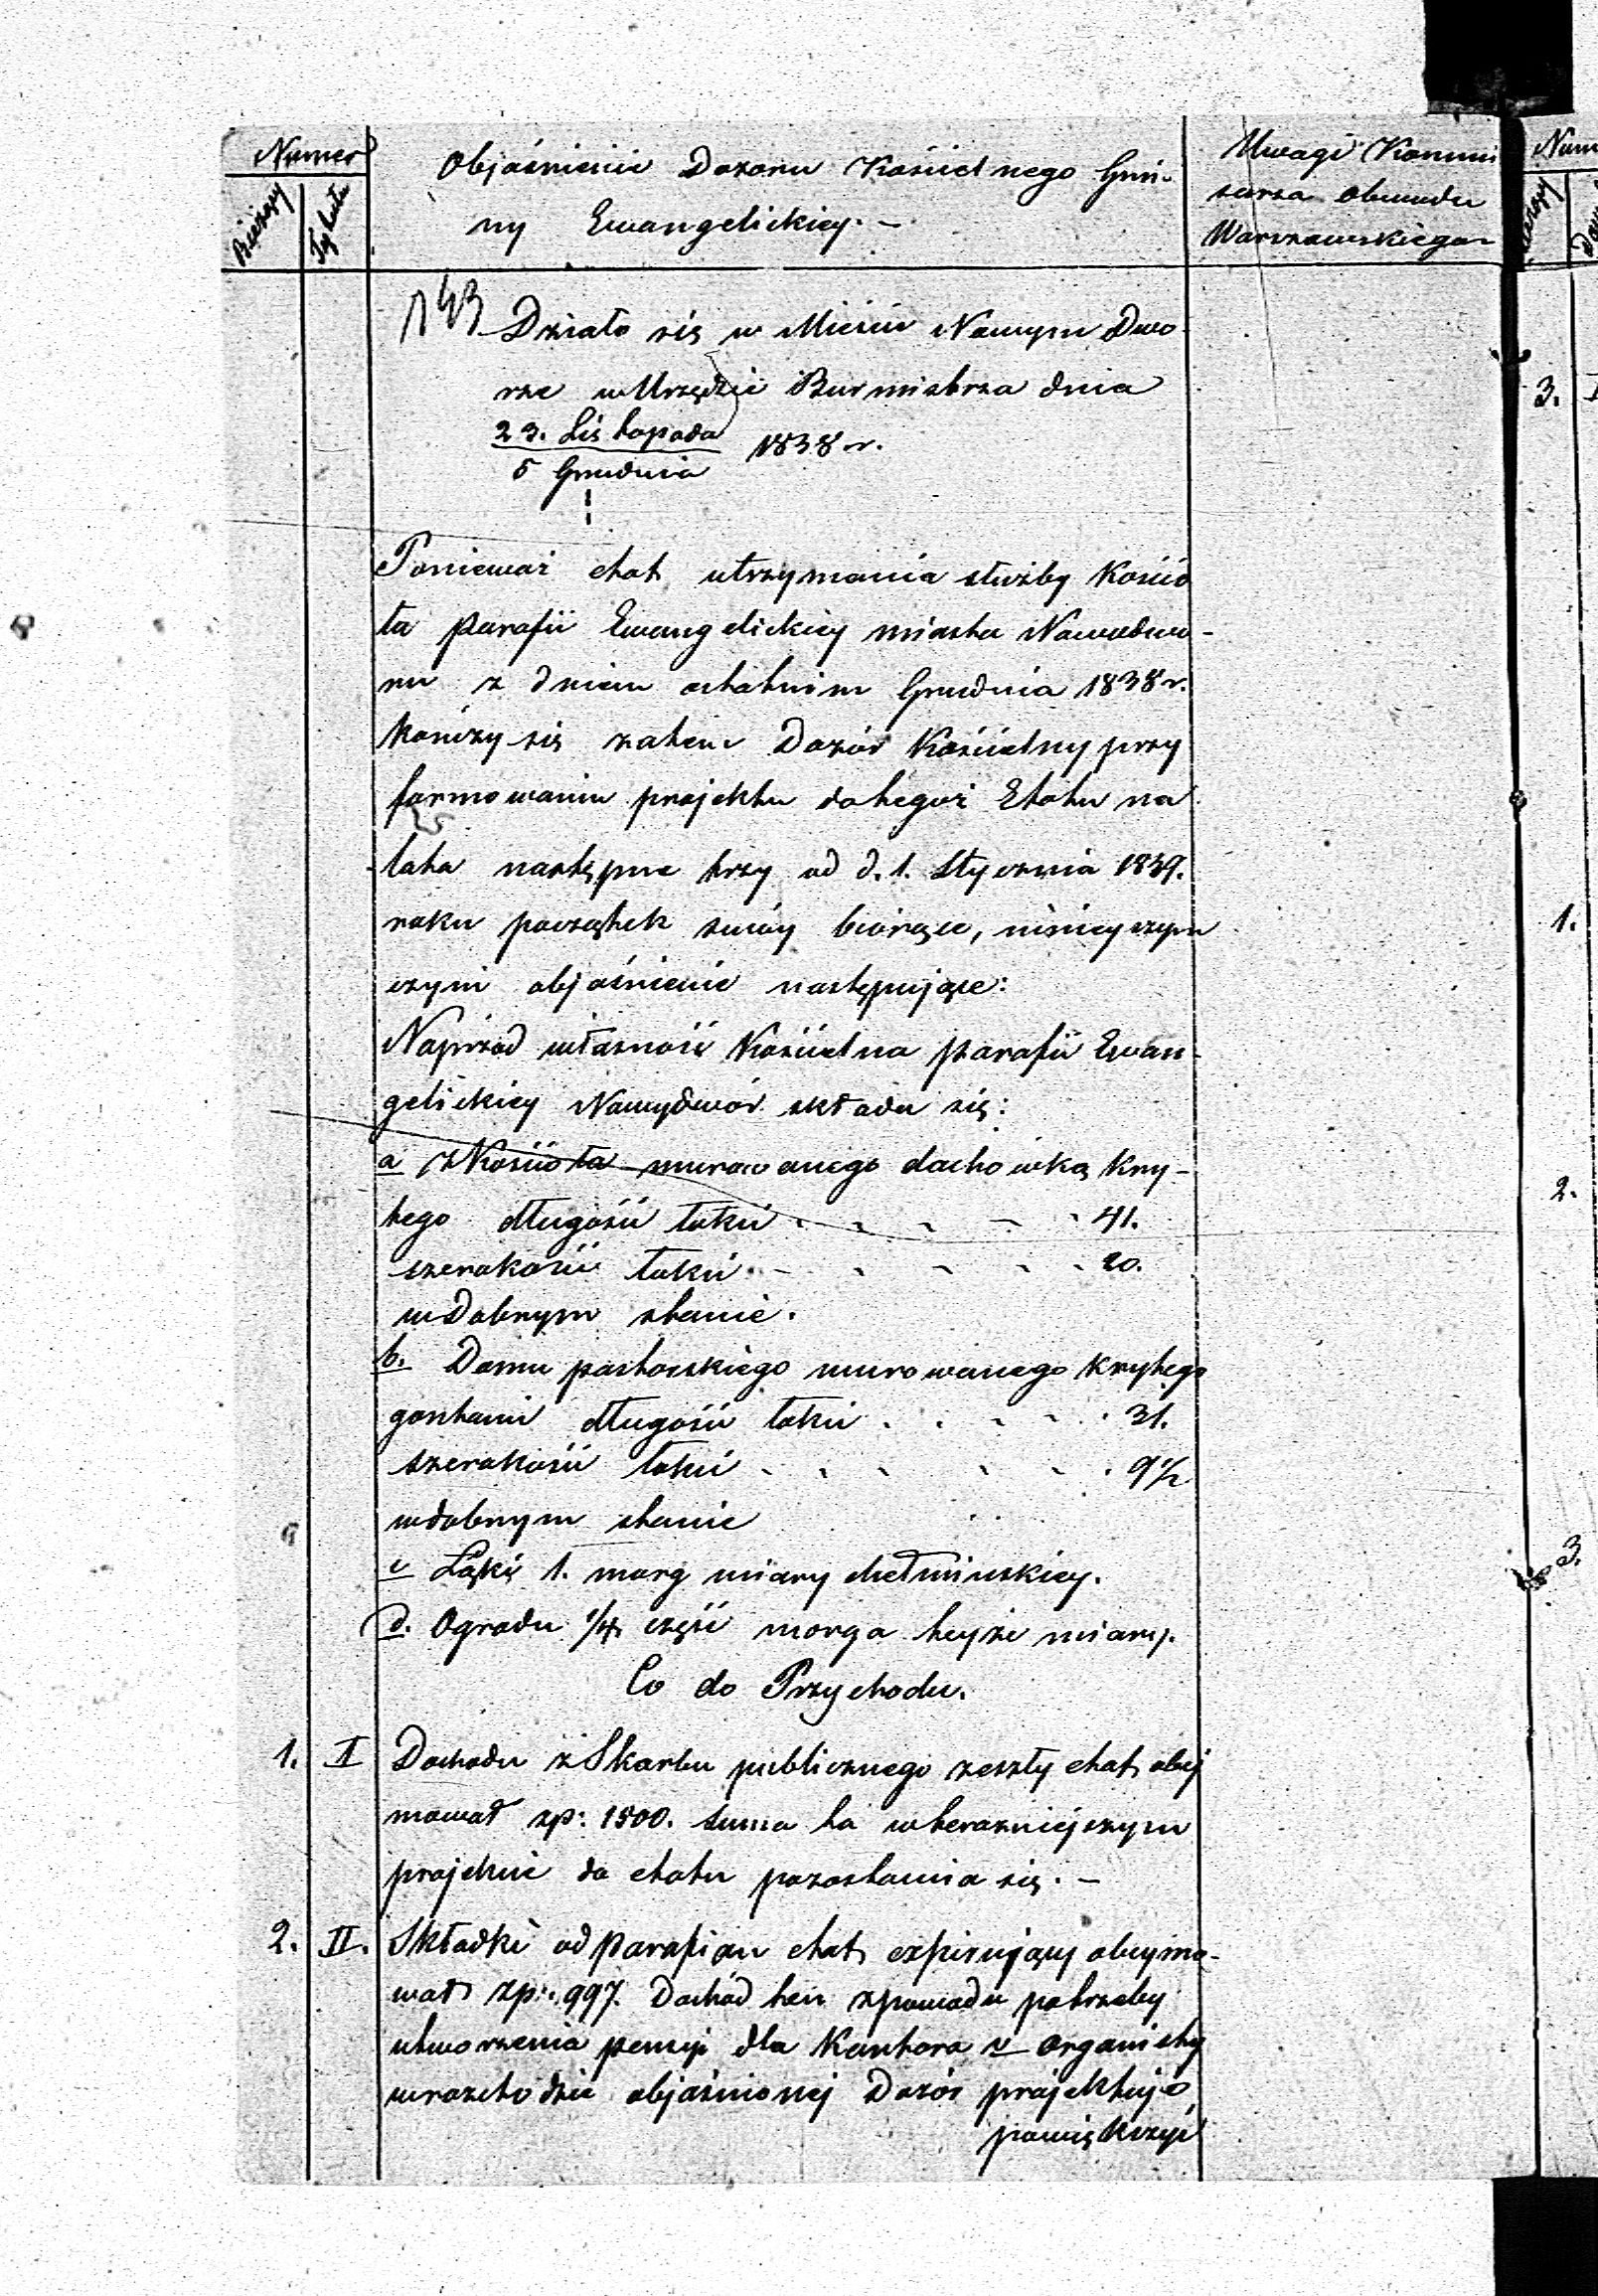 Numer
Bieżący
Tytułu
Objaśnienie Dozoru Kościelnego Gmi-
ny Ewangelickiey. -
Uwagi Kommi
sarza Obwodu
Warszawskiego
Num
143
Działo się w Mieście Nowym Dwo
rze w Urzędzie Burmistrza dnia
23. Listopada
5 Grudnia
1838 r.
Ponieważ etat utrzymania służby Kościo
ła parafii Ewangelickiey miasta Nowodwo-
ru z dniem ostatnim Grudnia 1838 r.
kończy się zatem Dozór Kościelny przy
formowaniu projektu do tegoż Etatu na
lata następne trzy od d. 1. Stycznia 1839.
roku początek swóy biorące, ninieyszym
czyni objaśnienie następujące:
Naprzód własność Kościelna parafii Ewan-
gelickiey Nowydwór składa się:
a z Kościoła murowanego dachówką kry-
tego długości łokci . . . . . 41.
szerokości łokci . - . . . . 20.
w Dobrym stanie.
b. Domu pastorskiego murowanego krytego
gontami długości łokci . . . . . 31.
szerokości łokci . . . . . . 9 1/2
w dobrym stanie
c Łąki 1. morg miary chełmińskiey.
d. Ogrodu 1/4 część morga teyże miary.
Co do Przychodu.
1. I Dochodu z Skarbu publicznego zeszły etat obej
mował zp: 1500. summa ta w terazniejszym
projekcie do etatu pozostawia się. -
2. II. Składki od Parafian etat expirujący obeymo-
wał zp: 997. Dochód ten z powodu potrzeby
utworzenia pensyi dla Kantora v organisty
w rozchodzie objaśnionej Dozór projektuje
powiększyć
3.
1.
2.
3.